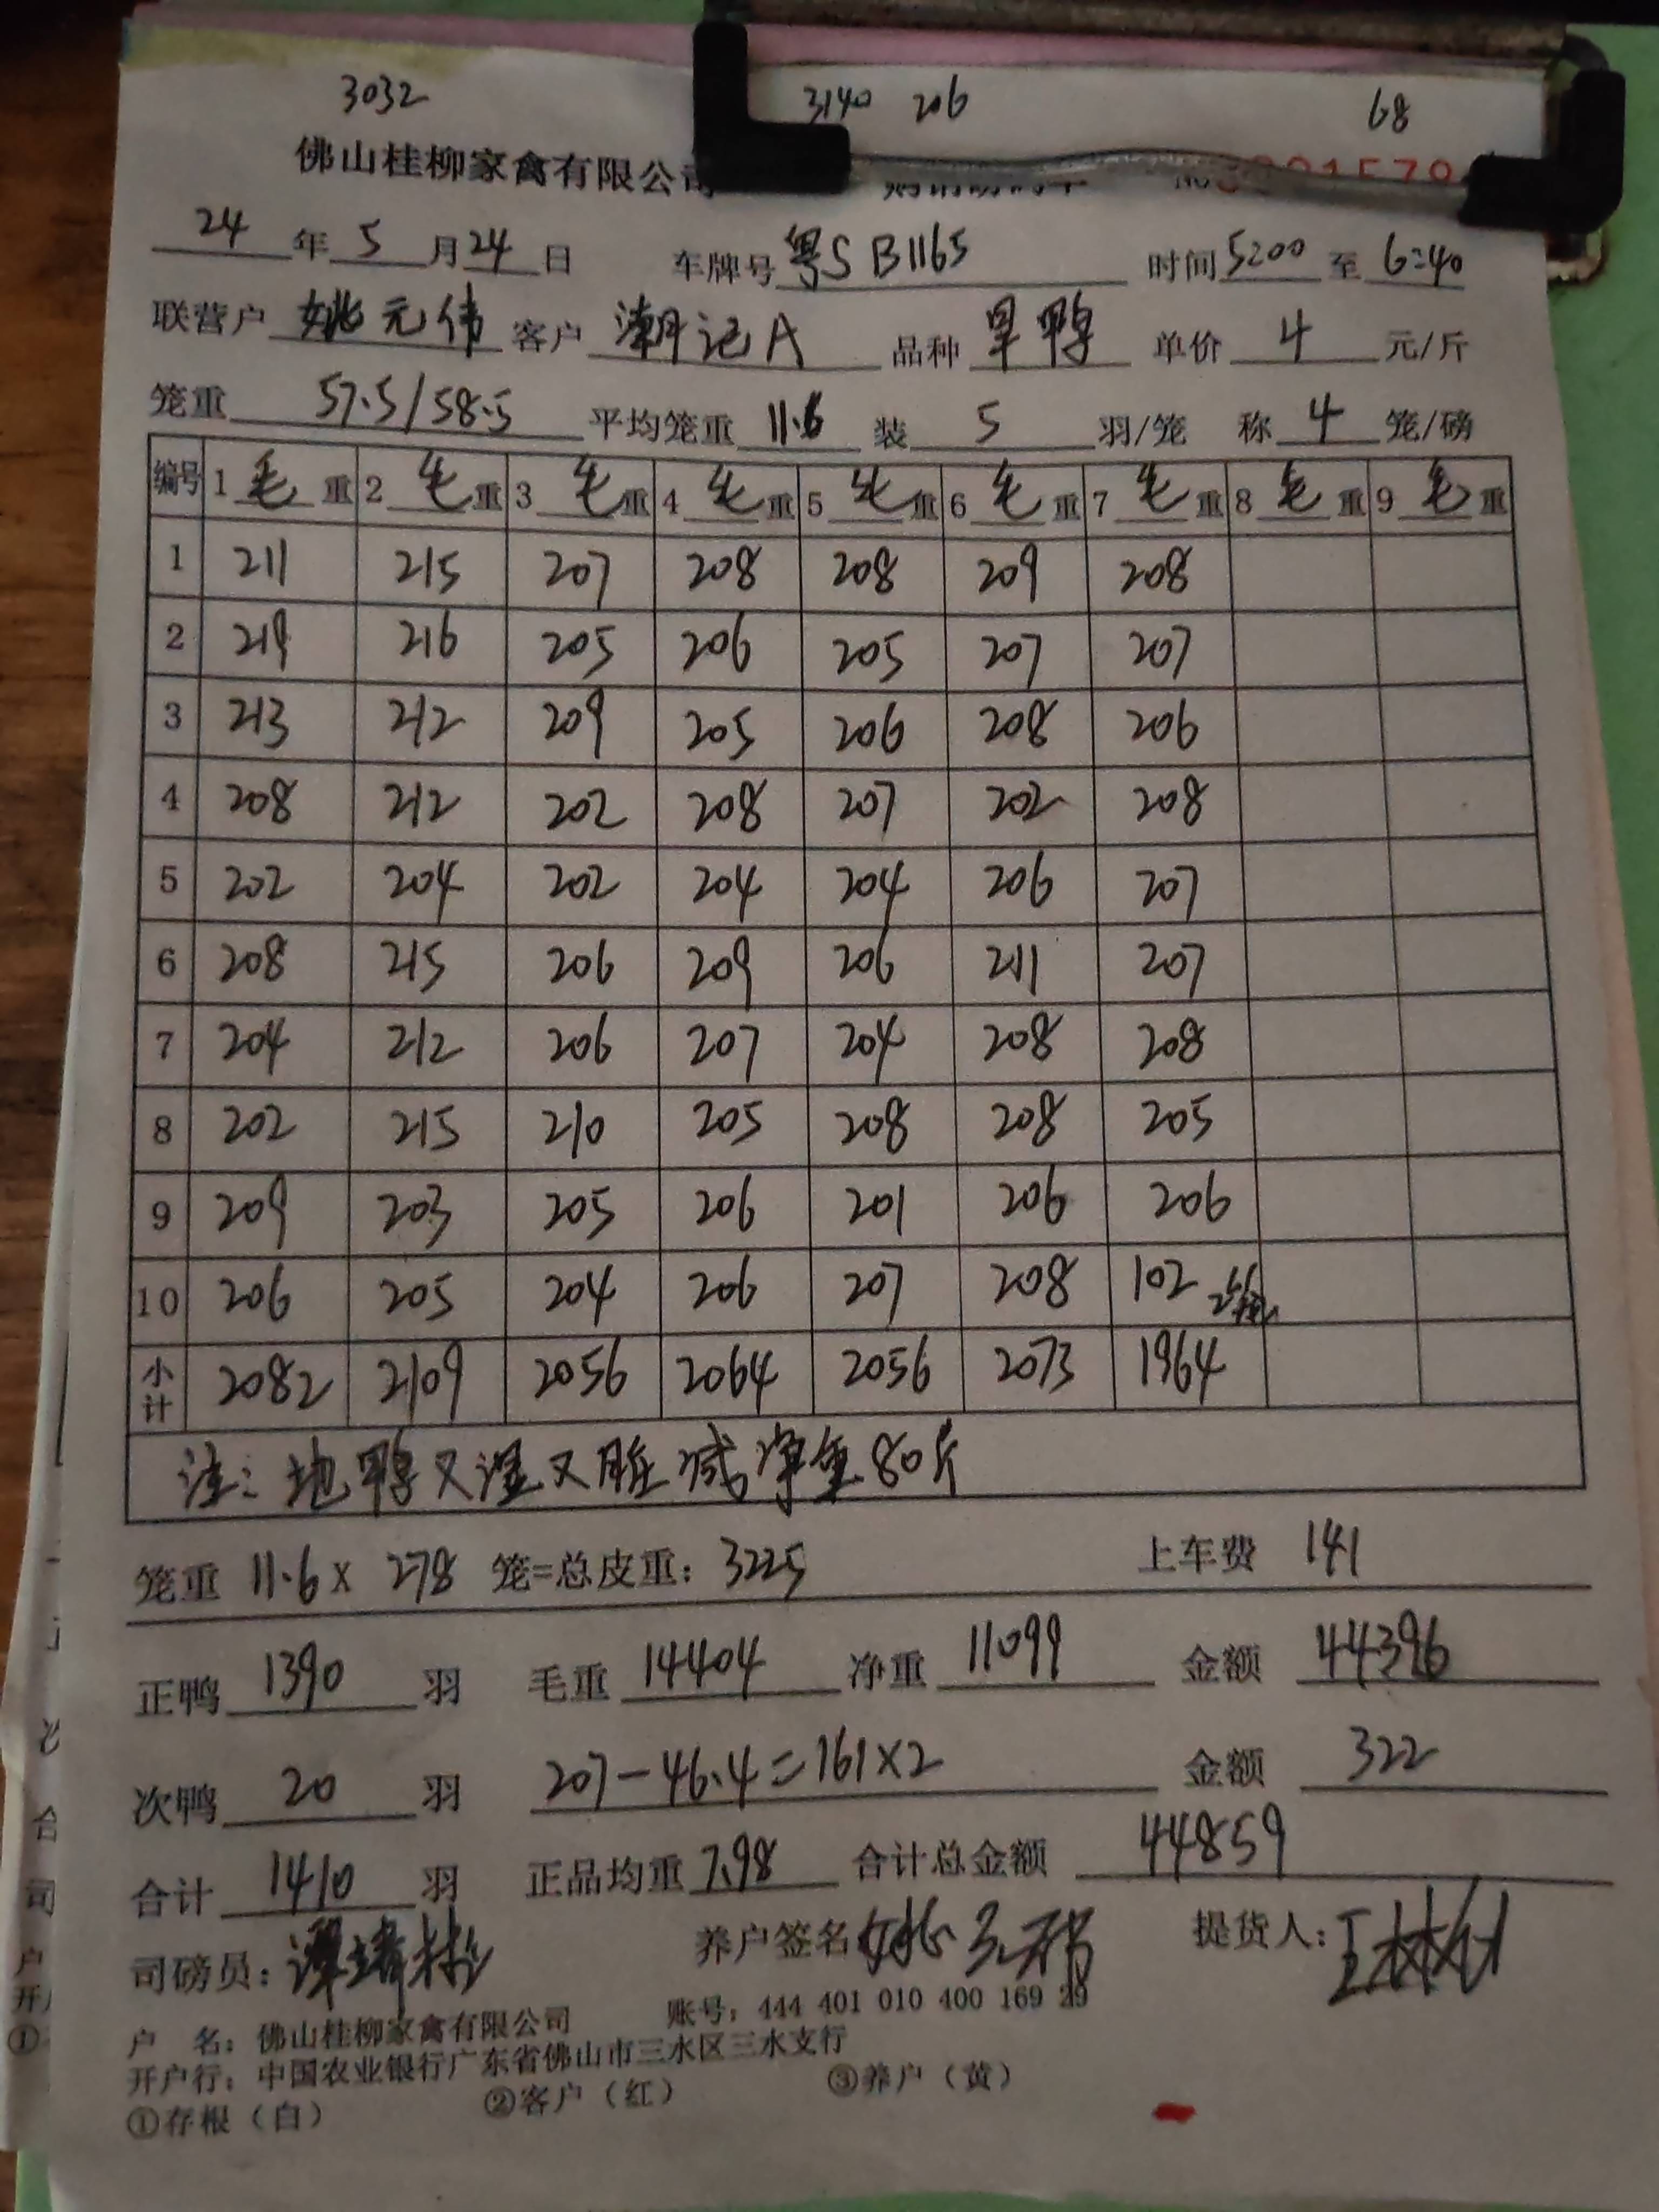 3032 3140 206 68
佛山桂柳家禽有限公司
24 年 5 月 24 日 车牌号 粤S B1165 时间 5:00 至 6:40
联营户 姚元伟 客户 潮记A 品种 旱鸭 单价 4 元/斤
笼重 57.5/58.5 平均笼重 11.6 装 5 羽/笼 称 4 笼/磅
编号 1 毛 重 2 毛 重 3 毛 重 4 毛 重 5 毛 重 6 毛 重 7 毛 重 8 毛 重 9 毛 重
1 211 215 207 208 208 209 208
2 219 216 205 206 205 207 207
3 213 212 209 205 206 208 206
4 208 212 202 208 207 202 208
5 202 204 202 204 204 206 207
6 208 215 206 209 206 211 207
7 204 212 206 207 204 208 208
8 202 215 210 205 208 208 205
9 209 203 205 206 201 206 206
10 206 205 204 206 207 208 102
小计 2082 2109 2056 2064 2056 2073 1964
注:地鸭又湿又脏减净重80斤
笼重 11.6 x 278 笼=总皮重: 3225 上车费 141
正鸭 1390 羽 毛重 14404 净重 11099 金额 44396
次鸭 20 羽 207-46.4=161×2 金额 322
合计 1410 羽 正品均重 7.98 合计总金额 44859
司磅员: 养户签名 提货人:
户 名: 佛山桂柳家禽有限公司 账号: 444 401 010 400 169 29
开户行: 中国农业银行广东省佛山市三水区三水支行
①存根（白） ②客户（红） ③养户（黄）